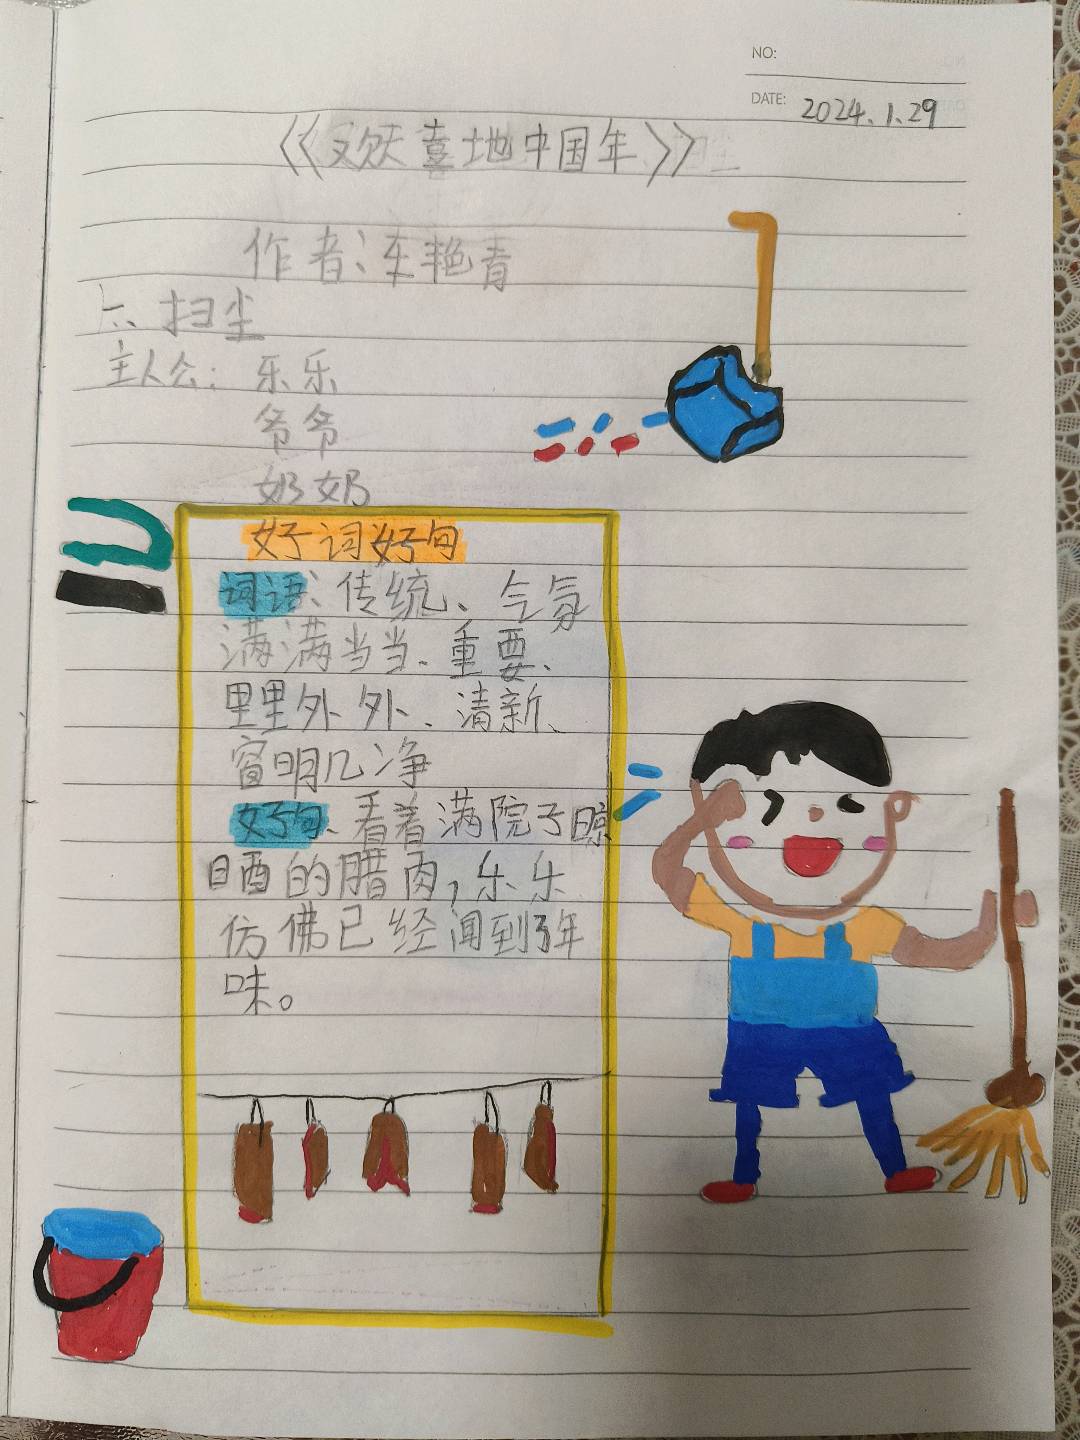 NO:
DATE: 2024.1.29
《欢天喜地中国年》
作者:车艳青
六、扫尘
主人公: 乐乐
爷爷
奶奶
好词好句
词语:传统、气氛
满满当当、重要、
里里外外、清新、
窗明几净
好句、看着满院子晾
晒的腊肉,乐乐
仿佛已经闻到了年
味。